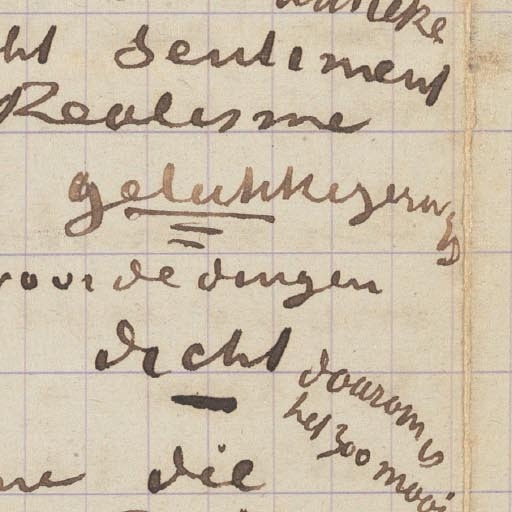 sentiment
Realisme
gelukkiger
voor de dingen
dicht
daarom is
het zoo mooi
die